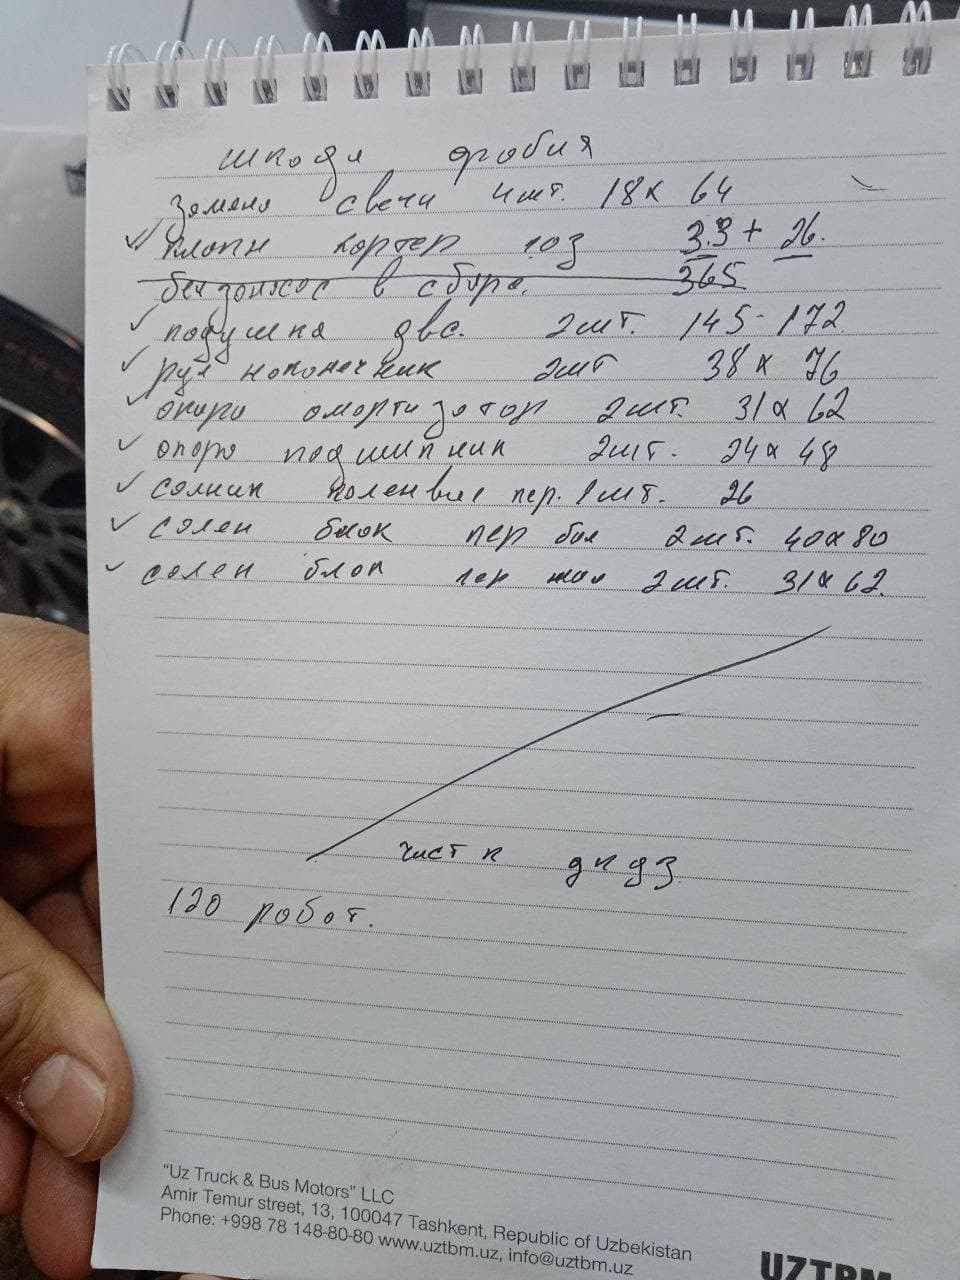 шкода фобия
замена свечи 4шт. 18х 64
клапн картер газ 33+ 26.
бензонасос в сборе. 365
подушка двс. 2шт. 145-172
рул наконечник 2шт 38х 76
опора амортизатор 2шт. 31х 62
опора подшипник 2шт. 24х 48
салник коленвал пер. 1шт. 26
сален блок пер бол 2шт. 40х80
сален блок пер мал 2шт. 31х62.
чистк дкдз
120 работ.
"Uz Truck & Bus Motors" LLC
Amir Temur street, 13, 100047 Tashkent, Republic of Uzbekistan
Phone: +998 78 148-80-80 www.uztbm.uz, info@uztbm.uz
UZTBM